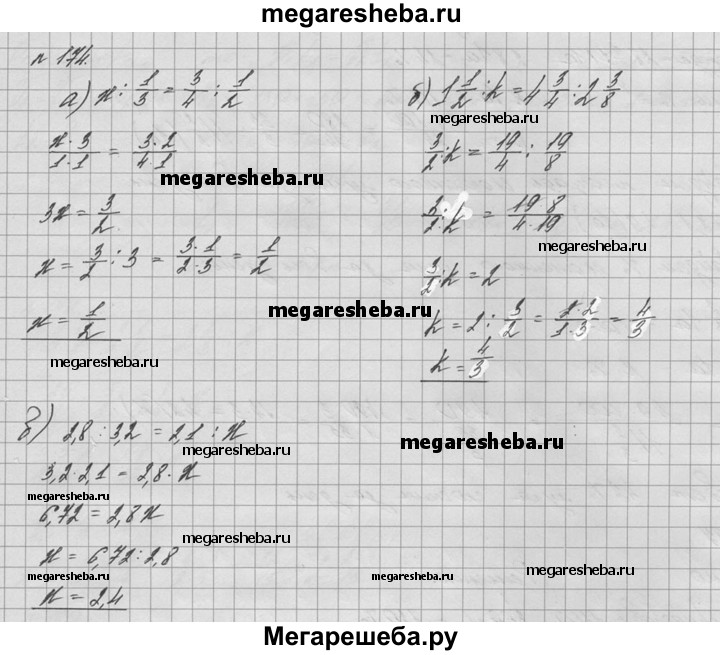 megaresheba.ru
№ 174.
а) x : 1/3 = 3/4 : 1/2
x·3/1·1 = 3·2/4·1
megaresheba.ru
3x = 3/2
x = 3/2 : 3 = 3·1/2·3 = 1/2
megaresheba.ru
x = 1/2
megaresheba.ru
б) 1 1/2 : k = 4 3/4 : 2 3/8
megaresheba.ru
3/2 : k = 19/4 : 19/8
3/2 : k = 19 8/4·19
megaresheba.ru
3/2 : k = 2
k = 2 : 3/2 = 2·2/1·3 = 4/3
k = 4/3
megaresheba.ru
б) 2,8 : 3,2 = 2,1 : x
megaresheba.ru
3,2·2,1 = 2,8·x
megaresheba.ru
6,72 = 2,8x
megaresheba.ru
x = 6,72 : 2,8
megaresheba.ru
megaresheba.ru
megaresheba.ru
x = 2,4
Мегарешеба.ру